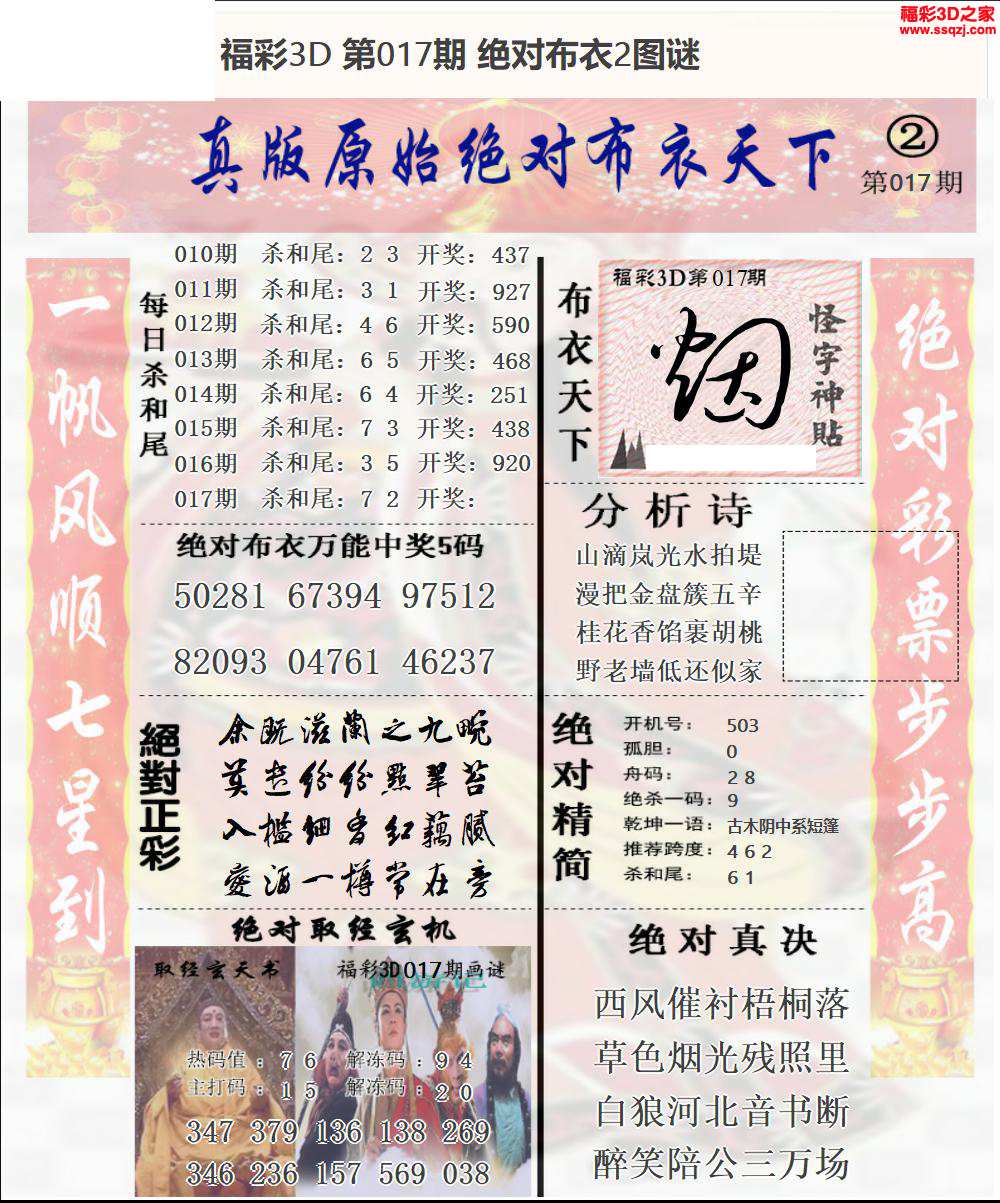 福彩3D之家
www.ssqzj.com
福彩3D 第017期 绝对布衣2图谜
真版原始绝对布衣天下
②
第017期
一帆风顺七星到
每日杀和尾
010期 杀和尾：2 3 开奖：437
011期 杀和尾：3 1 开奖：927
012期 杀和尾：4 6 开奖：590
013期 杀和尾：6 5 开奖：468
014期 杀和尾：6 4 开奖：251
015期 杀和尾：7 3 开奖：438
016期 杀和尾：3 5 开奖：920
017期 杀和尾：7 2 开奖：
绝对布衣万能中奖5码
50281 67394 97512
82093 04761 46237
絕對正彩
余既滋蘭之九畹
莫道纷纷點翠苔
入槛细看红藕腻
变酒一樽常在旁
绝对取经玄机
取经玄天书
福彩3D017期画谜
热码值：7 6 解冻码：9 4
主打码：1 5 解冻码：2 0
347 379 136 138 269
346 236 157 569 038
布衣天下
福彩3D第017期
烟
怪字神貼
分析诗
山滴岚光水拍堤
漫把金盘簇五辛
桂花香馅裹胡桃
野老墙低还似家
绝对精简
开机号：503
孤胆：0
舟码：2 8
绝杀一码：9
乾坤一语：古木阴中系短篷
推荐跨度：4 6 2
杀和尾：6 1
绝对真决
西风催衬梧桐落
草色烟光残照里
白狼河北音书断
醉笑陪公三万场
绝对彩票步步高